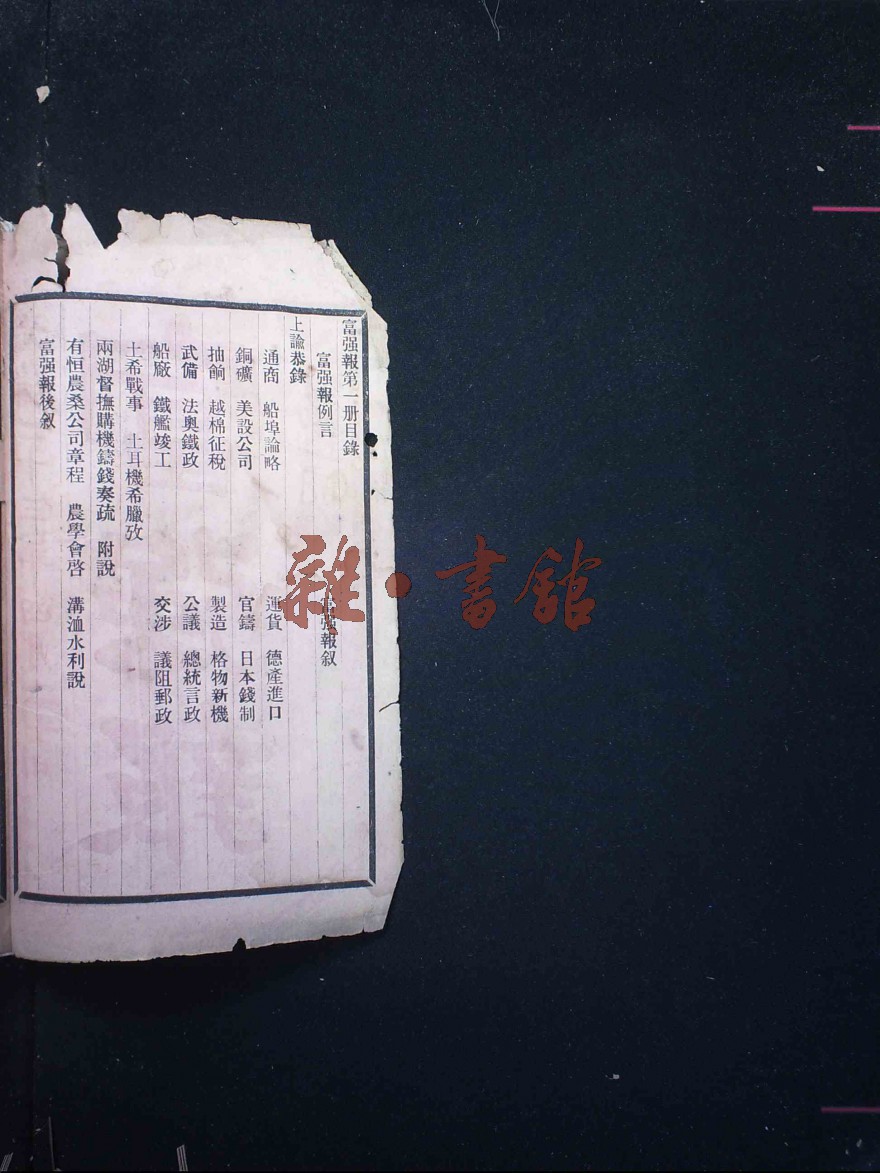 富强報第一册目錄
富强報例言 富强報叙
上諭恭錄
通商 船埠論略 運貨 德產進口
銅礦 美設公司 官鑄 日本錢制
抽餉 越棉征稅 製造 格物新機
武備 法奧鐵政 公議 總統言政
船廠 鐵艦竣工 交涉 議阻郵政
土希戰事 土耳機希臘攷
兩湖督撫購機鑄錢奏疏 附說
有恒農桑公司章程 農學會啓 溝洫水利說
富强報後叙
雜·書館